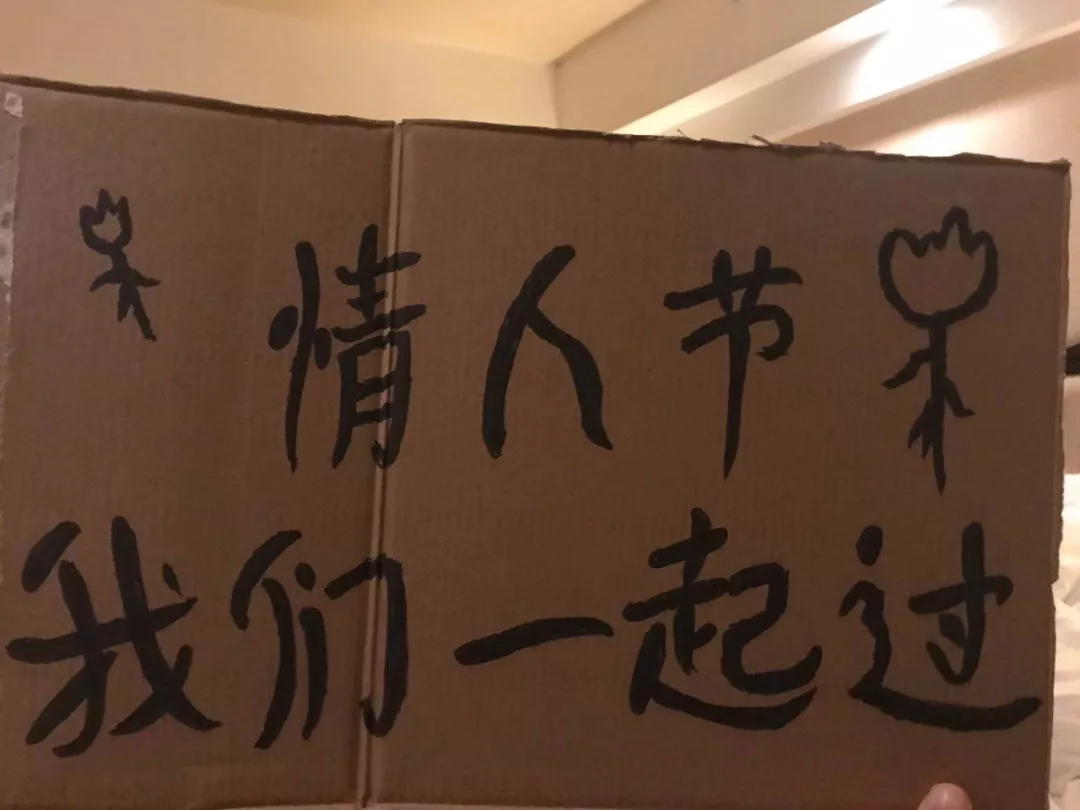 情人节
我们一起过